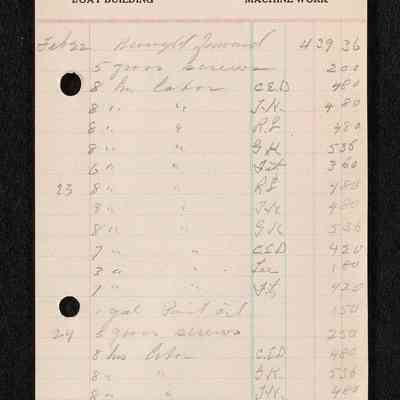 BOAT BUILDING MACHINE WORK
Feb 22 Brought Forward 439 36
5 gross screws 2 00
8 hr labor C.E.D 4 80
8 " " J.K. 4 80
8 " " R.L 4 80
8 " " G.K 5 36
6 " " 3 60
23 8 " " R.L 4 80
8 " " J.K 4 80
8 " " G.K 5 36
7 " " C.E.D 4 20
3 " " Lee 1 80
7 " " 4 20
1 gal Paint oil 1 50
24 5 gross screws 2 50
8 hrs labor C.E.D. 4 80
8 " " G.K. 5 36
8 " " J.K. 4 80